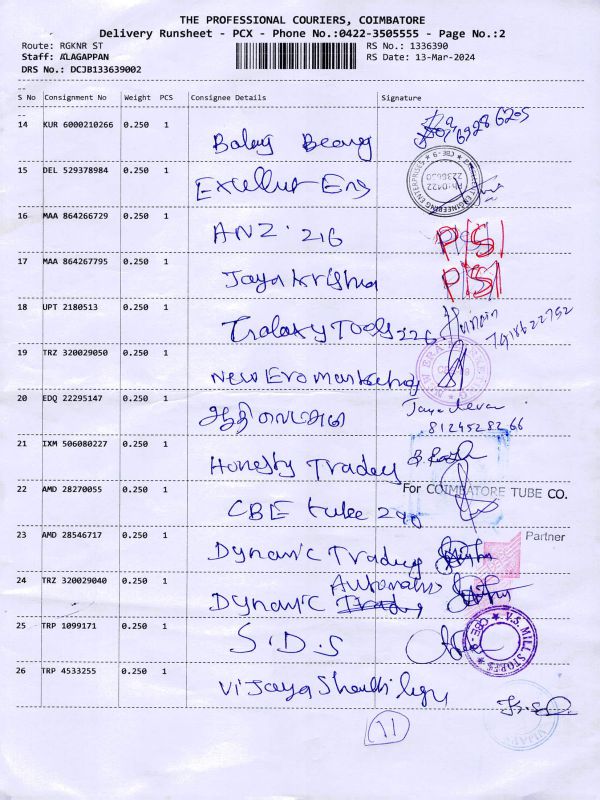 THE PROFESSIONAL COURIERS, COIMBATORE
Delivery Runsheet - PCX - Phone No.:0422-3505555 - Page No.:2
Route: RGKNR ST
RS No.: 1336390
Staff: ALAGAPPAN
RS Date: 13-Mar-2024
DRS No.: DCJB133639002
S No Consignment No Weight PCS Consignee Details Signature
14 KUR 6000210266 0.250 1
15 DEL 529378984 0.250 1
Excellent Eng
16 MAA 864266729 0.250 1
ANZ 216
17 MAA 864267795 0.250 1
Jaya krishna
18 UPT 2180513 0.250 1
Tools 226
7918622752
19 TRZ 320029050 0.250 1
New Era Marketing
20 EDQ 22295147 0.250 1
8124528266
21 IXM 506080227 0.250 1
Honesty Tradey
22 AMD 28270055 0.250 1
CBE tube 290
For COIMBATORE TUBE CO.
Partner
23 AMD 28546717 0.250 1
Dynamic Trading
24 TRZ 320029040 0.250 1
Dynamic
25 TRP 1099171 0.250 1
S.D.S
V.S. MILL STORES
CBE
26 TRP 4533255 0.250 1
Vijaya
11